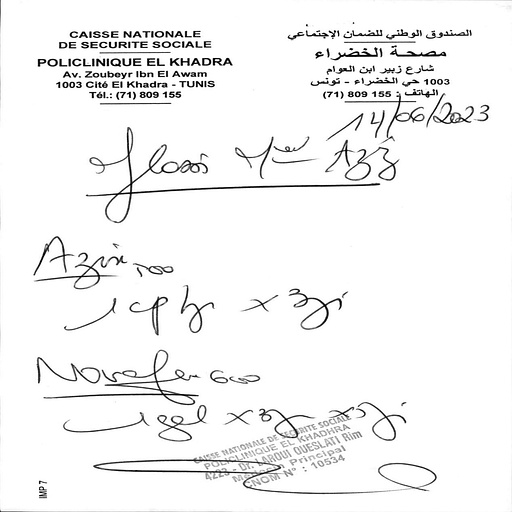 CAISSE NATIONALE
DE SECURITE SOCIALE
POLICLINIQUE EL KHADRA
Av. Zoubeyr Ibn El Awam
1003 Cité El Khadra - TUNIS
Tél.: (71) 809 155
الصندوق الوطني للضمان الإجتماعي
مصحة الخضراء
شارع زبير ابن العوام
1003 حي الخضراء - تونس
الهاتف : 155 809 (71)
14/06/2023
Azi
Azix 500
1cp x 3j
Novafen 600
1gel x 3 x 5j
CAISSE NATIONALE DE SECURITE SOCIALE
POLICLINIQUE EL KHADHRA
4223 - Dr. LAROUI OUESLATI Rim
Médecin Principal
CNOM N° : 10534
IMP 7